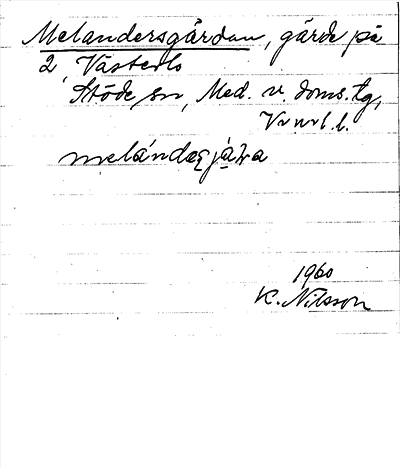 Melandersgärdan, gärde på
2 Västerlo
Stöde sn, Med. v. doms. tg,
Vn. nrl. l.
melándæʂjæ̣ḷa
1960
K. Nilsson